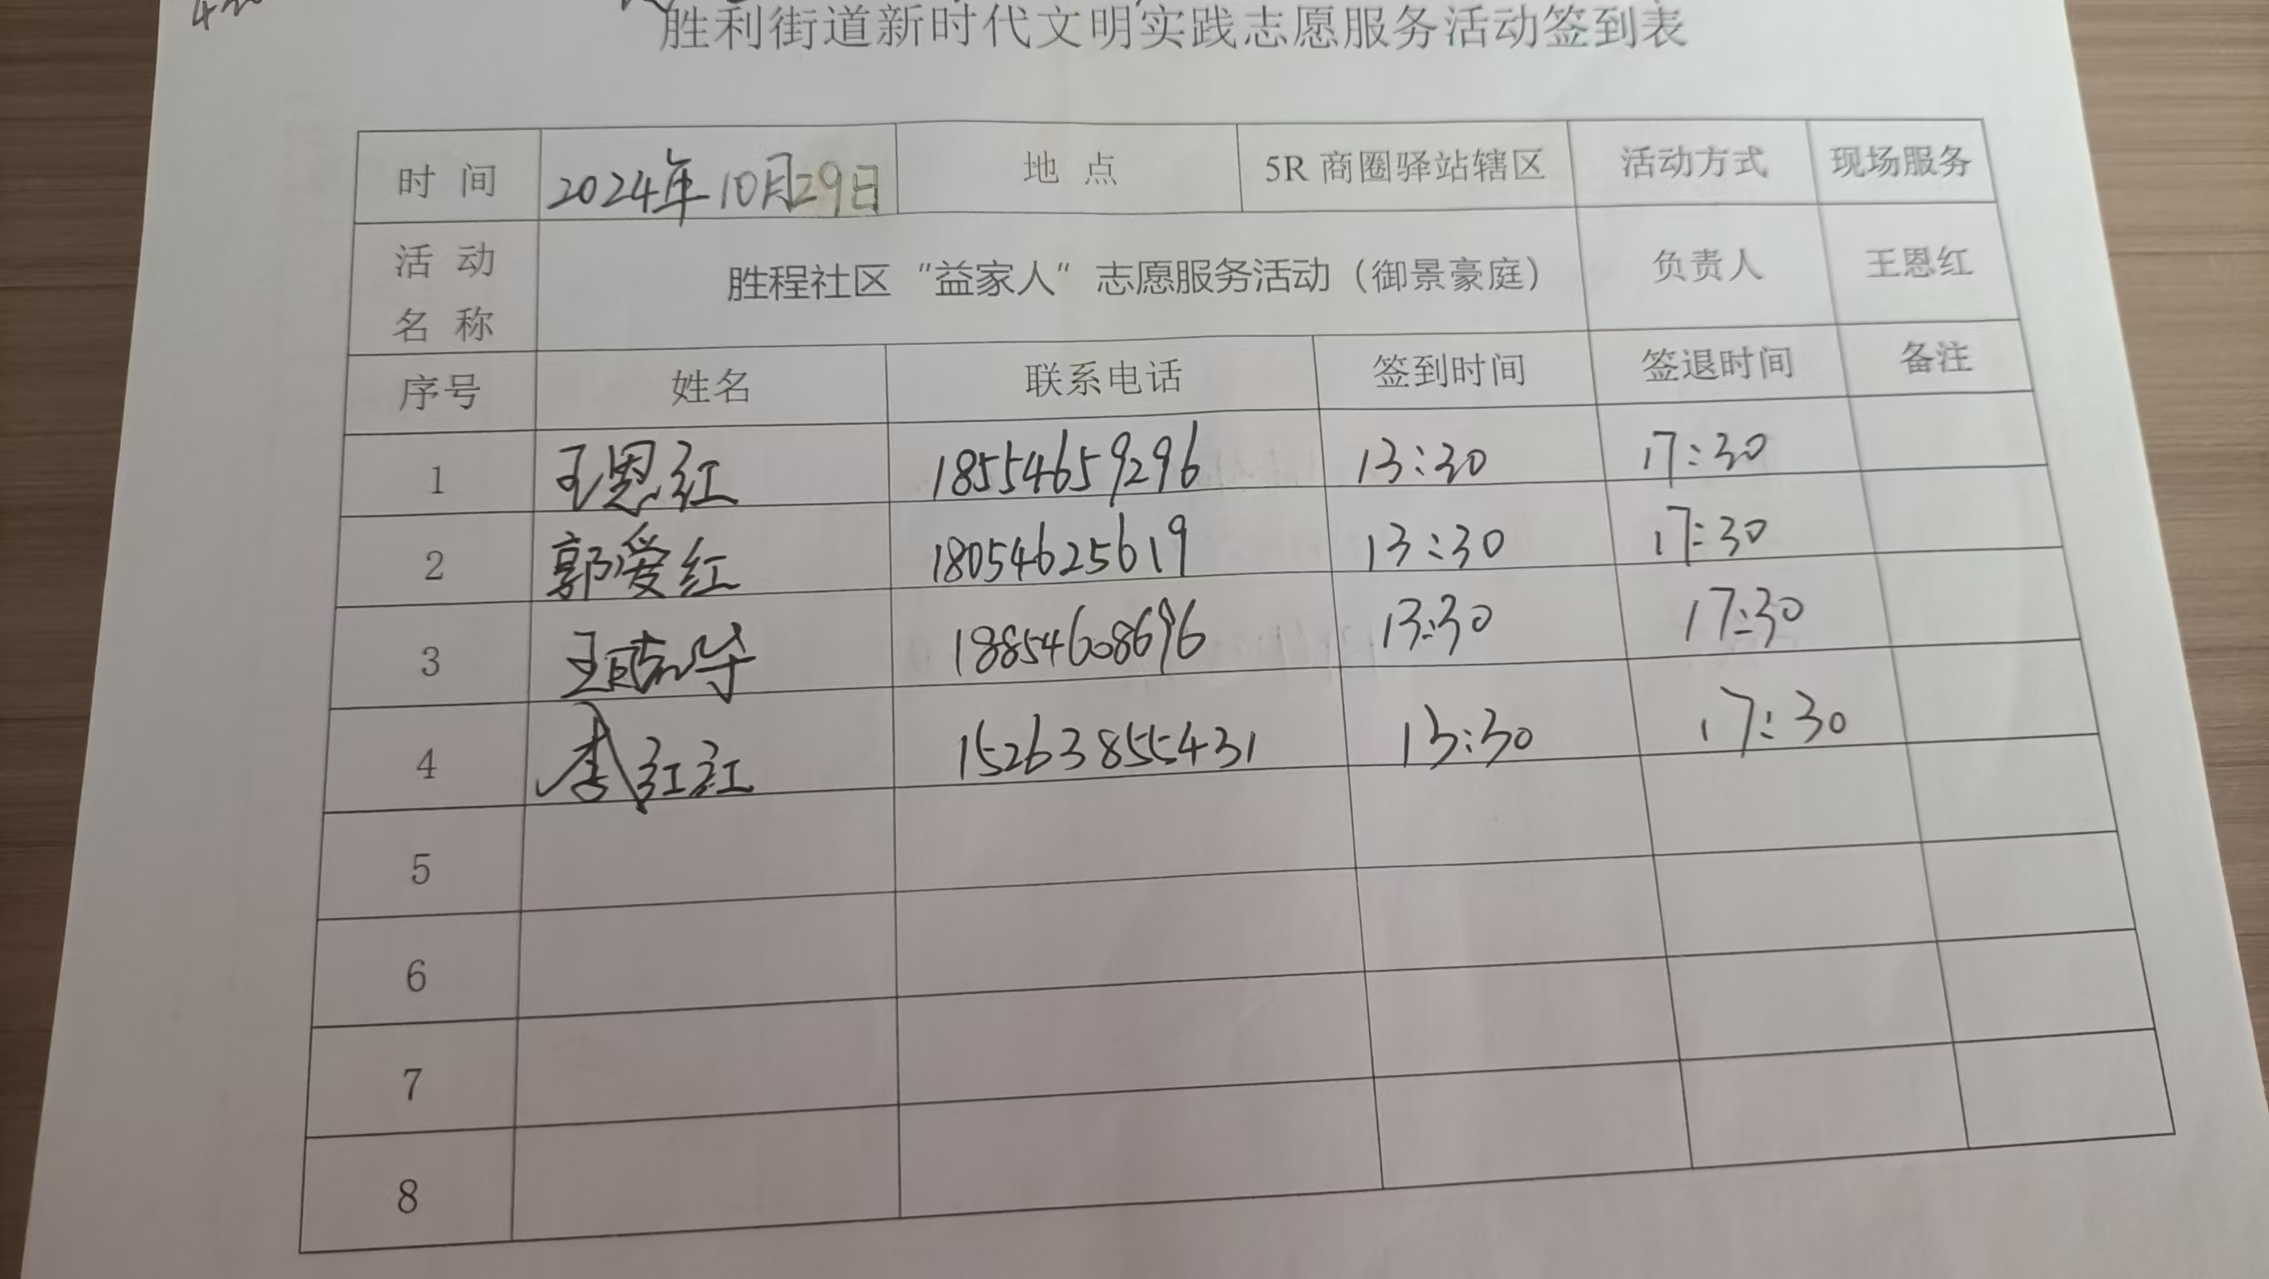 胜利街道新时代文明实践志愿服务活动签到表
时 间 2024年10月29日 地 点 5R 商圈驿站辖区 活动方式 现场服务
活 动 名 称 胜程社区“益家人”志愿服务活动（御景豪庭） 负责人 王恩红
序号 姓名 联系电话 签到时间 签退时间 备注
1 王恩红 18554659296 13:30 17:30
2 郭爱红 18054625619 13:30 17:30
3 18854608696 13:30 17:30
4 李红红 15263855431 13:30 17:30
5
6
7
8